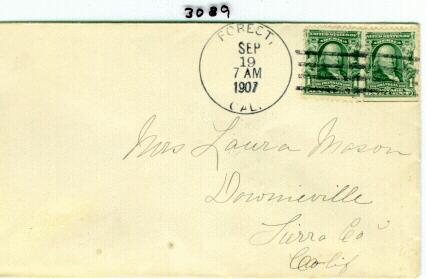 3089
FOREST,
SEP
19
7 AM
1907
CAL.
Mrs Laura Mason
Downieville
Sierra Co
Calif